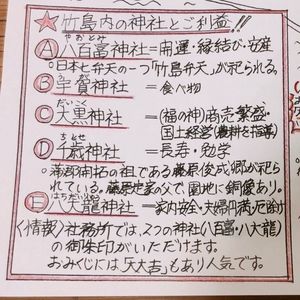 ☆竹島内の神社とご利益!!
やおとみ
Ⓐ八百富神社=開運・縁結び・安産
日本七弁天の一つ「竹島弁天」が祀られる。
うが
Ⓑ宇賀神社=食べ物
だいこく
Ⓒ大黒神社=(福の神)商売繁盛・
国土経営(農耕を指導)
ちとせ
Ⓓ千歳神社=長寿・勉学
蒲郡開拓の祖である藤原俊成卿が祀ら
れている。藤原定家の父で園地に銅像あり。
はちだいりゅう
Ⓔ八大龍神社=家内安全・夫婦円満・厄除け
〈情報〉社務所では、2つの神社(八百富・八大龍)
の御朱印がいただけます。
おみくじには「大大吉」もあり人気です。